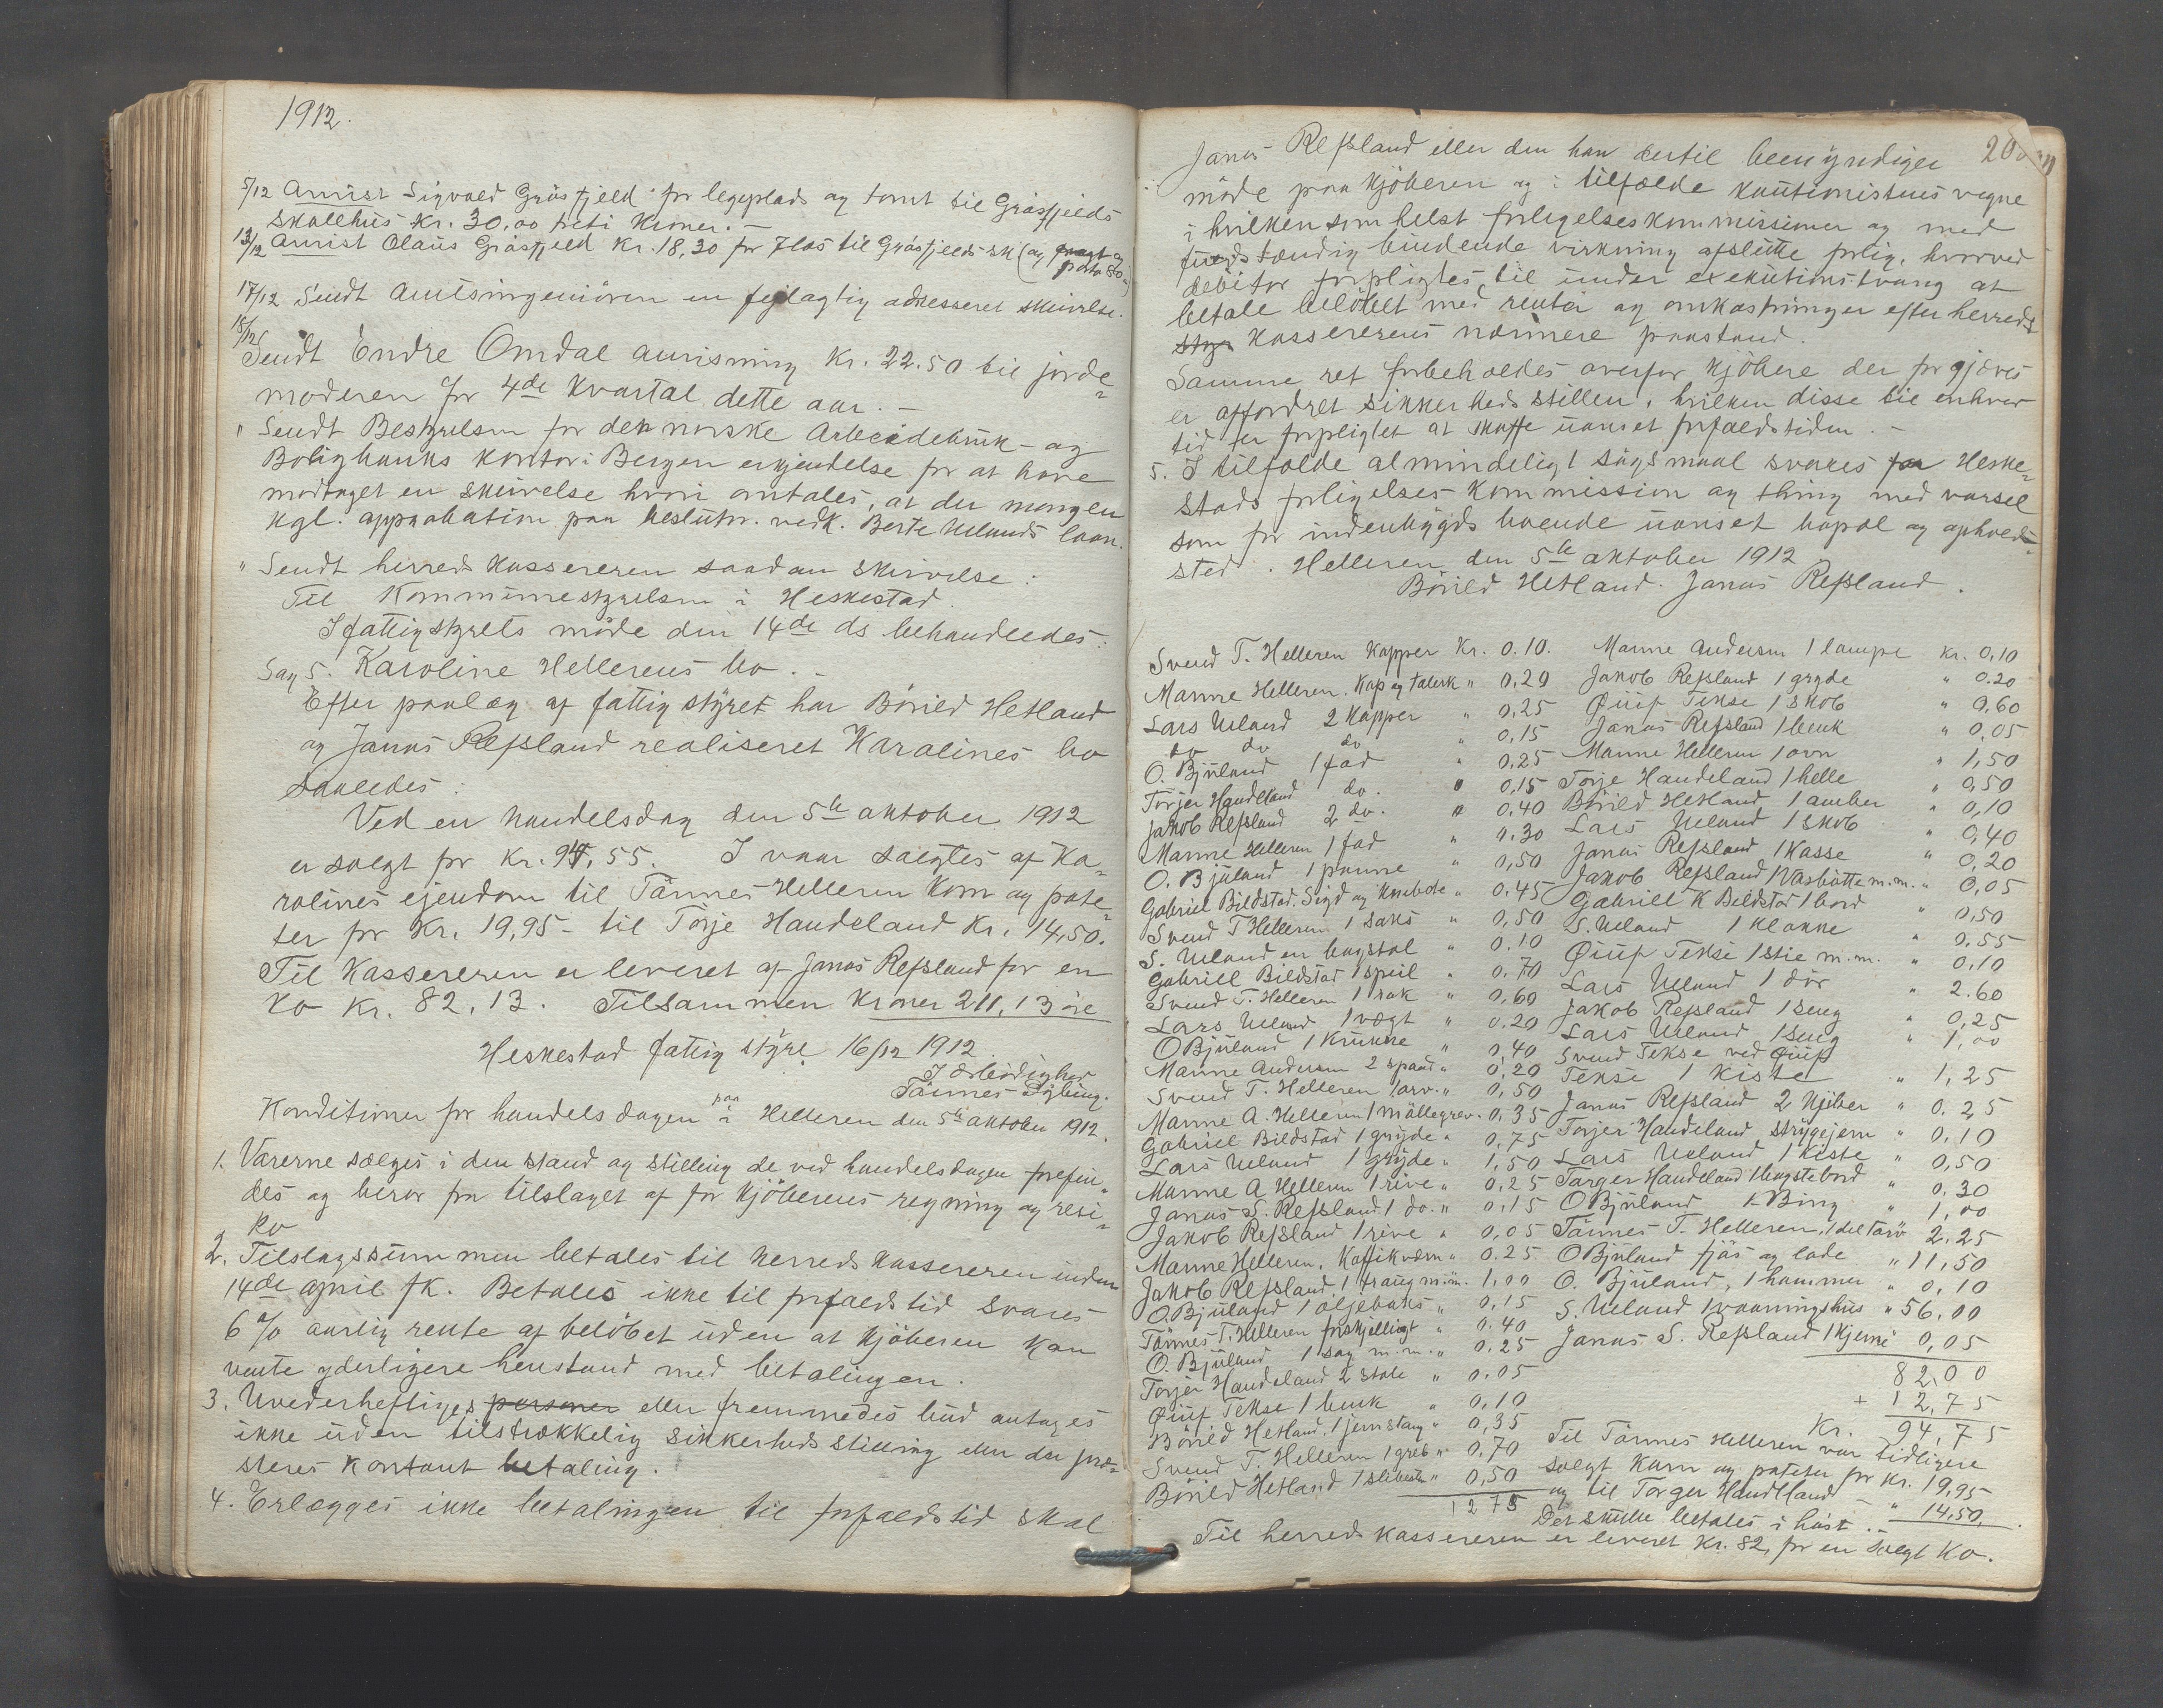 1912.
5/12 Anvist Sigvald Gråsfjeld for legeplads og tomt til Gråsfjelds
skolehus kr. 30,00 treti kroner. —
12/12 Anvist Olaus Gråsfjeld kr. 18,30 for 7 las til Gråsfjelds sk (og fragt og
porto 80)
17/12 Sendt Amtsingeniören en fejlagtig adresseret skrivelse.
18/12
Sendt Endre Omdal anvisning kr. 22.50 til jorde-
moderen for 4de kvartal dette aar. —
" Sendt Bestyrelsen for den norske Arbeiderbruk- og
Boligbanks kontor i Bergen erkjendelse for at have
modtaget en skrivelse hvori omtales, at der mangler
kgl. approbation paa beslutn. vedk. Berte Uelands laan.
" Sendt herredskassereren saadan skrivelse:
Til Kommunestyrelsen i Heskestad.
I fattigstyrets möde den 14de ds behandledes:
Sag 5. Karoline Hellerens bo. —
Efter paalæg af fattigstyret har Börild Hetland
og Janas Refsland realiseret Karolines bo
saaledes:
Ved en handelsdag den 5te oktober 1912
er solgt for kr. 94,55. I vaar solgtes af Ka-
rolines ejendom til Tännes Helleren korn og pote-
ter for kr. 19,95 - til Törje Handeland kr. 14,50.
Til Kassereren er leveret af Janas Refsland for en
ko kr. 82,13. Tilsammen kroner 211,13 öre
Heskestad fattigstyre 16/12 1912
I ærbödighed
Tännes Dybing.
Konditioner for handelsdagen paa i Helleren den 5te oktober 1912.
1. Varerne sælges i den stand og stilling de ved handelsdagen forefin-
des og beror fra tilslaget af for kjöberens regning og resi-
ko
2. Tilslagssummen betales til herredskassereren inden
14de april fk. Betales ikke til forfaldstid svares
6 % aarlig rente af belöbet uden at kjöberen kan
vente yderligere henstand med betalingen.
3. Uvederheftiges personer eller fremmedes bud antages
ikke uden tilstrækkelig sikkerhedsstilling eller der præ-
steres kontant betaling.
4. Erlægges ikke betalingen til forfaldstid skal
Janas Refsland eller den han dertil bemyndiger
möde paa kjöberen og i tilfælde kautionistens vegne
i hvilkensomhelst forligelseskommissioner og med
fuldstændig bindende virkning afslutte forlig, hvorved
debitor forpligtes til under exekutionstvang at
betale belöbet med renter og omkostninger efter herreds
styr kassererens nærmere paastand.
Samme ret forbeholdes overfor kjöbere der forgjæves
er affordret sikkerhedsstillen, hvilken disse til enhver
tid er forpligtet at skaffe uanset forfaldstiden. —
5. I tilfælde almindeligt sögsmaal svares for Heske-
stads forligelseskommission og thing med varsel
som for indenbygds boende uanset bopæl og opholds-
sted. Helleren den 5te oktober 1912
Börild Hetland. Janas Refsland.
Svend T. Helleren kopper kr. 0.10.
Manne Helleren. Kop og talerk " 0.20
Lars Ueland 2 kopper " 0,25
do do do " 0,15
O. Bjuland 1 fad " 0,25
Torjer Handeland do. " 0,15
Jakob Refsland 2 do. " 0,40
Manne Helleren 1 fad " 0.30
O. Bjuland 1 panne " 0,50
Gabriel Bildstad. Sigd og " 0.45
Svend T Helleren 1 saks " 0,50
S. Ueland en bogstol " 0.10
Gabriel Bildstad 1 speil " 0.70
Svend T. Helleren 1 rok " 0,60
Lars Ueland 1 vægt " 0.20
O Bjuland 1 krukke " 0,40
Manne Andersen 2 spand " 0,20
Svend T. Helleren 1 arv. " 0,50
Manne A. Helleren 1 möllegrev. 0,35
Gabriel Bildstad 1 gryde " 0,75
Lars Ueland 1 gryde " 1,50
Manne A Helleren 1 rive " 0,25
Janas S. Refsland 1 do. " 0,15
Jakob Refsland 1 rive " 0,05
Manne Helleren. Kaffikværn " 0.25
Jakob Refsland, 1 traug m.m. 1,00
O. Bjuland 1 oljeboks " 0,15
Tännes T. Helleren forskjelligt " 0.40
O. Bjuland 1 sag m.m. " 0.25
Torjer Handeland 2 stole " 0.05
Øiuf Tekse 1 benk " 0,10
Börild Hetland, 1 jernstang " 0,35
Svend T. Helleren 1 greb " 0,70
Börild Hetland 1 " 0,50
1275
Manne Andersen 1 lampe kr. 0,10
Jakob Refsland 1 gryde " 0.20
Øiuf Tekse 1 skob " 0,60
Janas Refsland 1 benk " 0,05
Manne Helleren 1 ovn " 1,50
Torje Handeland 1 helle " 0,50
Börild Hetland 1 amber " 0,10
Lars Ueland 1 skob " 0,40
Janas Refsland 1 kasse " 0,20
Jakob Refsland 1 vasbötte m.m. " 0,05
Gabriel K Bildstad 1 bord " 0,50
S. Ueland 1 klokke " 0,55
Øiuf Tekse 1 stie m.m. " 0,10
Lars Ueland 1 dör " 2.60
Jakob Refsland 1 seng " 0,25
Lars Ueland 1 seng " 1,00
Svend Tekse ved Øiuf
Tekse 1 kiste " 1,25
Janas Refsland 2 kjöler " 0.25
Torjer Handeland strygejern " 0,10
Lars Ueland 1 kiste " 0,50
Torger Handeland 1 bord " 0.30
O Bjuland 1 Bing " 1,00
Tännes T. Helleren, 1 del 2,25
O Bjuland fjös og lade " 11,50
O. Bjuland, 1 hammer " 0,10
S. Ueland 1 vaaningshus " 56,00
Janas S. Refsland 1 kjerne 0,05
82,00
+ 12,75
Kr. 94,75
Til Tännes Helleren var tidligere
solgt korn og poteter for kr. 19,95
og til Torger Handeland - " 14,50.
Det skulle betales i höst. —
Til herredskassereren er leveret kr. 82, for en solgt ko.